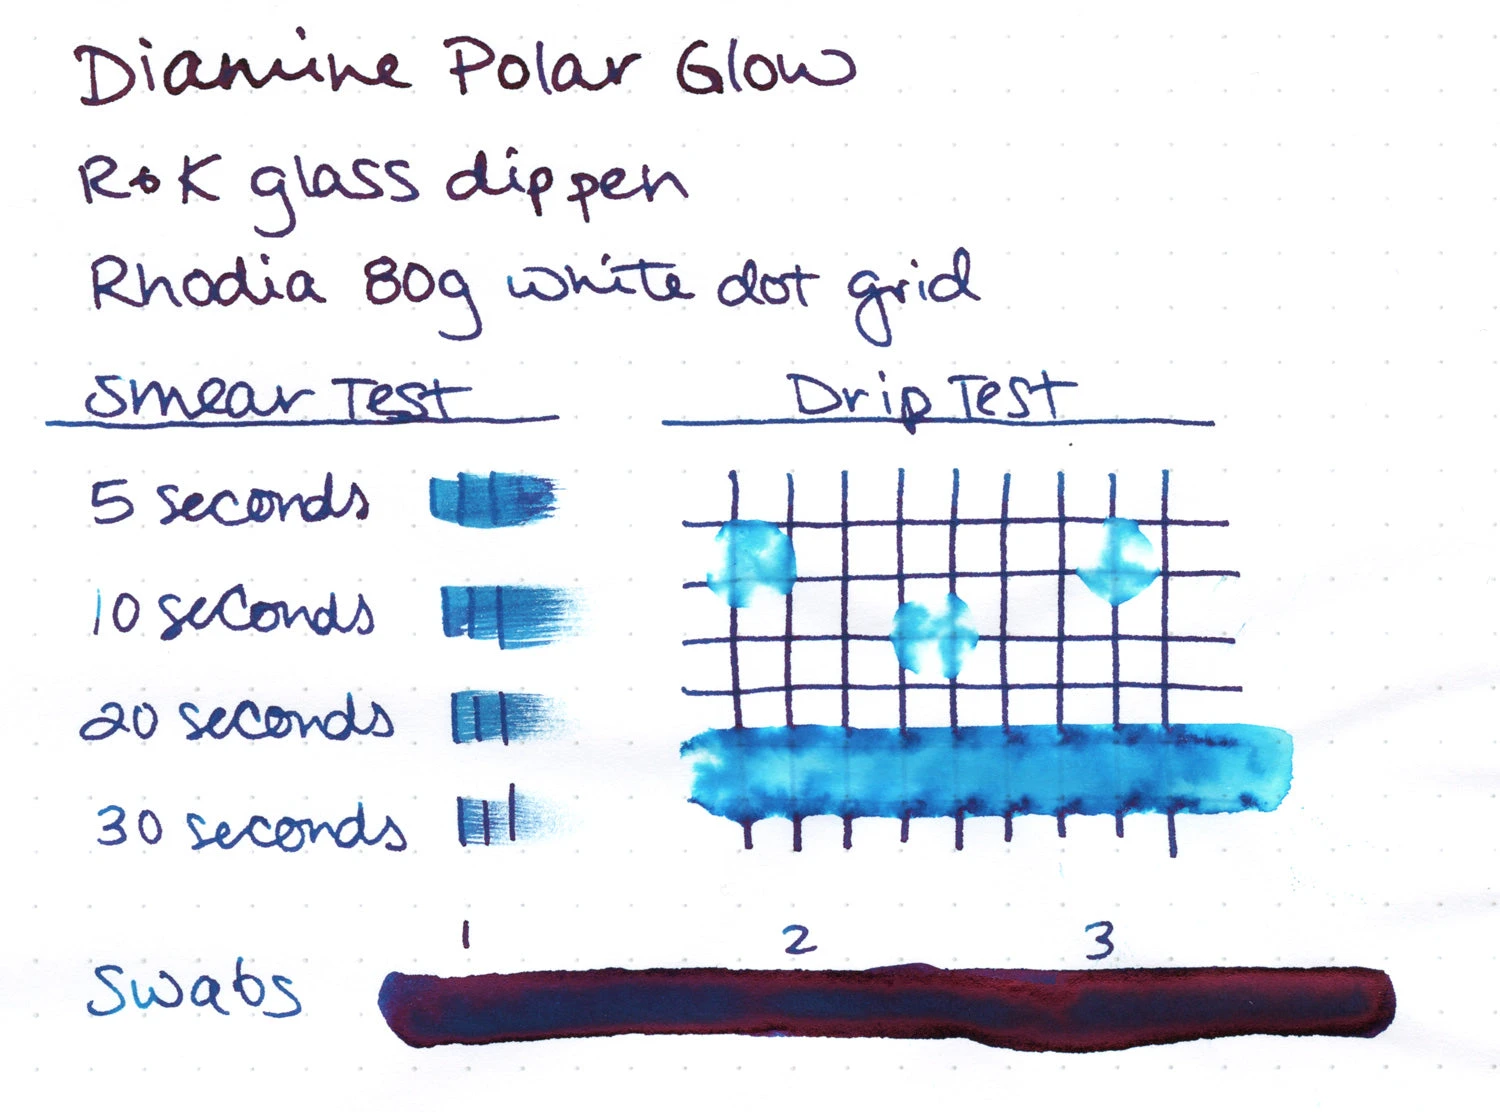 Diamine Polar Glow
R+K glass dip pen
Rhodia 80g white dot grid
Smear Test
Drip Test
5 seconds
10 seconds
20 seconds
30 seconds
1 2 3
Swabs